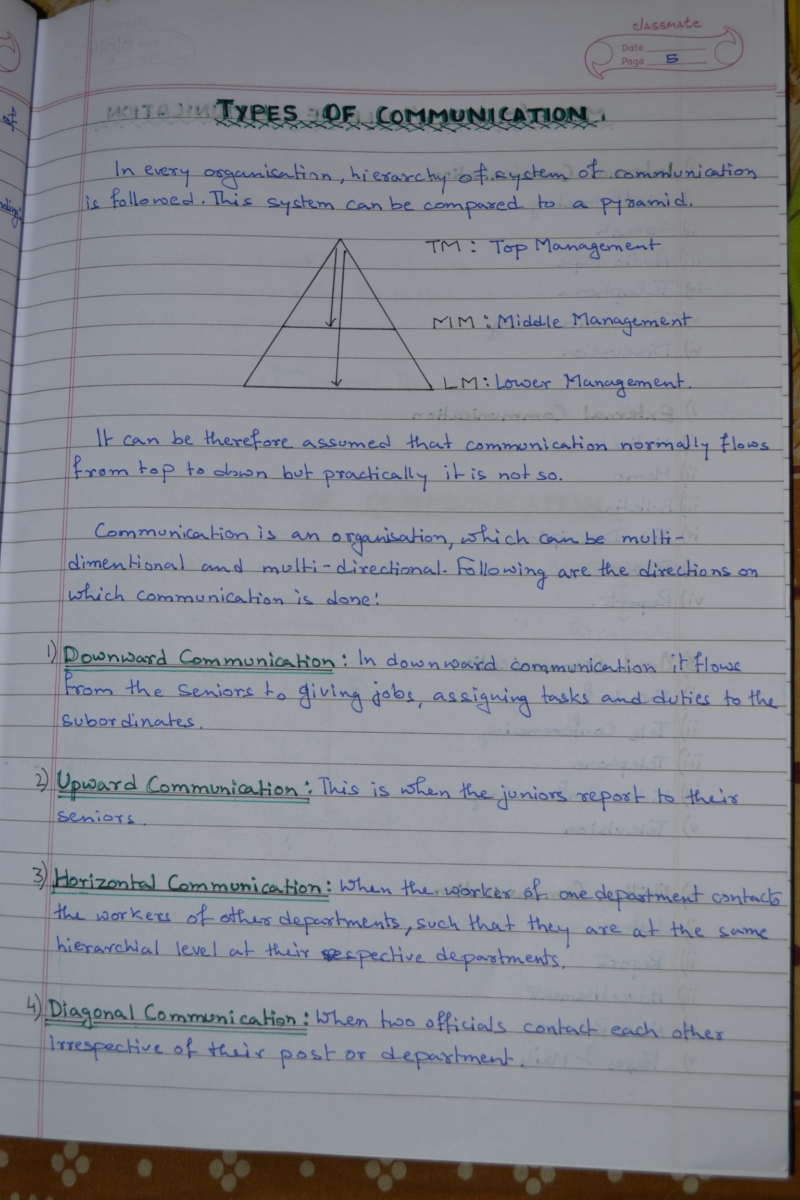 classmate
Date
Page 5
TYPES OF COMMUNICATION.
In every organisation, hierarchy of system of communication
is followed. This system can be compared to a pyramid.
TM: Top Management
MM: Middle Management
LM: Lower Management.
It can be therefore assumed that communication normally flows
from top to down but practically it is not so.
Communication is an organisation, which can be multi-
dimentional and multi-directional. Following are the directions on
which communication is done:
1) Downward Communication: In downward communication it flows
from the seniors to giving jobs, assigning tasks and duties to the
subordinates.
2) Upward Communication: This is when the juniors report to their
seniors.
3) Horizontal Communication: When the worker of one department contacts
the workers of other departments, such that they are at the same
hierarchial level at their respective departments.
4) Diagonal Communication: When two officials contact each other
irrespective of their post or department.